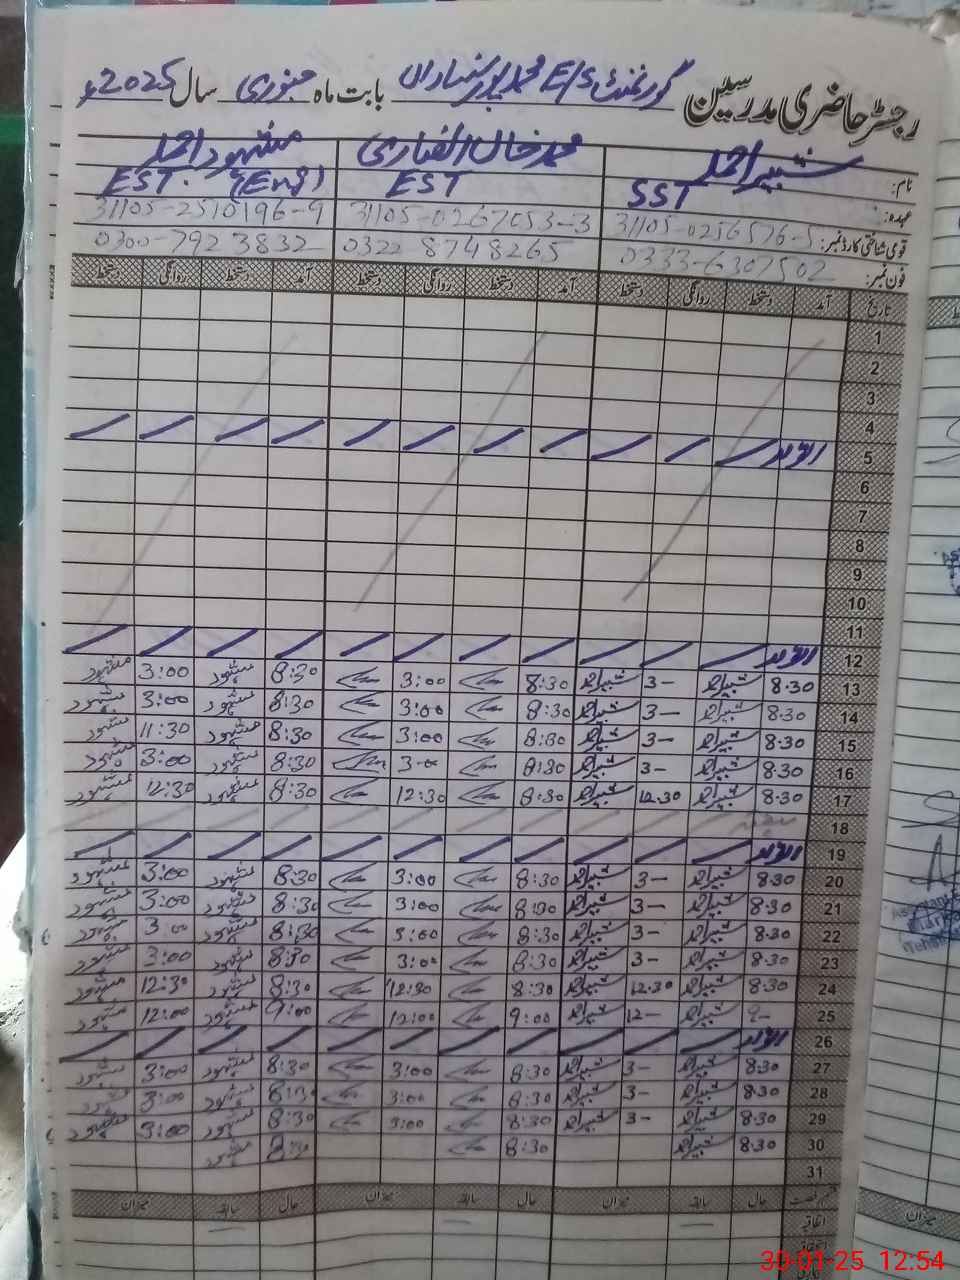 رجسٹر حاضری مدرسین گورنمنٹ E/S محمد پور نساراں بابت ماہ جنوری سال 2025ء
نام: شبیر احمد محمد خالد الغفاری مشہود احمد
عہدہ: SST EST EST (Eng)
قومی شناختی کارڈ نمبر: 31105-0256576-5 31105-0267053-3 31105-2510196-9
فون نمبر: 0333-6307502 0322 8748265 0300-792 3832
تاریخ آمد دستخط روانگی دستخط آمد دستخط روانگی دستخط آمد دستخط روانگی دستخط
1
2
3
4
5 اتوار
6
7
8
9
10
11
12 اتوار
13 8.30 شبیر احمد 3- شبیر احمد 8:30 3:00 8:30 مشہود 3:00 مشہود
14 8.30 شبیر احمد 3- شبیر احمد 8:30 3:00 8:30 مشہود 3:00 مشہود
15 8.30 شبیر احمد 3- شبیر احمد 8:30 3:00 8:30 مشہود 11:30 مشہود
16 8.30 شبیر احمد 3- شبیر احمد 8:30 3:00 8:30 مشہود 3:00 مشہود
17 8.30 شبیر احمد 12.30 شبیر احمد 8:30 12:30 8:30 مشہود 12:30 مشہود
18
19 اتوار
20 8.30 شبیر احمد 3- شبیر احمد 8:30 3:00 8:30 مشہود 3:00 مشہود
21 8.30 شبیر احمد 3- شبیر احمد 8:30 3:00 8:30 مشہود 3:00 مشہود
22 8.30 شبیر احمد 3- شبیر احمد 8:30 3:00 8:30 مشہود 3:00 مشہود
23 8.30 شبیر احمد 3- شبیر احمد 8:30 3:00 8:30 مشہود 3:00 مشہود
24 8.30 شبیر احمد 12.30 شبیر احمد 8:30 12:30 8:30 مشہود 12:30 مشہود
25 9- شبیر احمد 12- شبیر احمد 9:00 12:00 9:00 مشہود 12:00 مشہود
26 اتوار
27 8.30 شبیر احمد 3- شبیر احمد 8:30 3:00 8:30 مشہود 3:00 مشہود
28 8.30 شبیر احمد 3- شبیر احمد 8:30 3:00 8:30 مشہود 3:00 مشہود
29 8.30 شبیر احمد 3- شبیر احمد 8:30 3:00 8:30 مشہود 3:00 مشہود
30 8.30 شبیر احمد 8:30 8:30 مشہود
31
قسم رخصت حال سابقہ میزان حال سابقہ میزان حال سابقہ میزان
اتفاقیہ
میزان
30-01-25 12:54